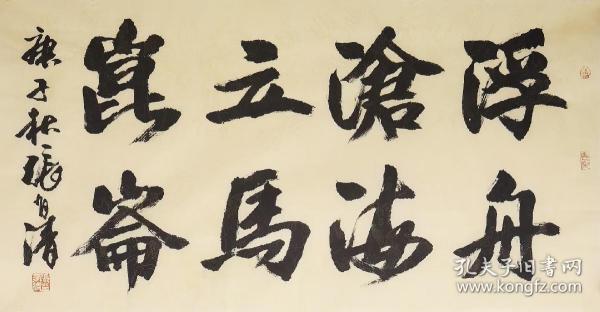 浮舟
滄海
立馬
崑崙
庚子秋 張旭清
孔夫子旧书网
www.kongfz.com